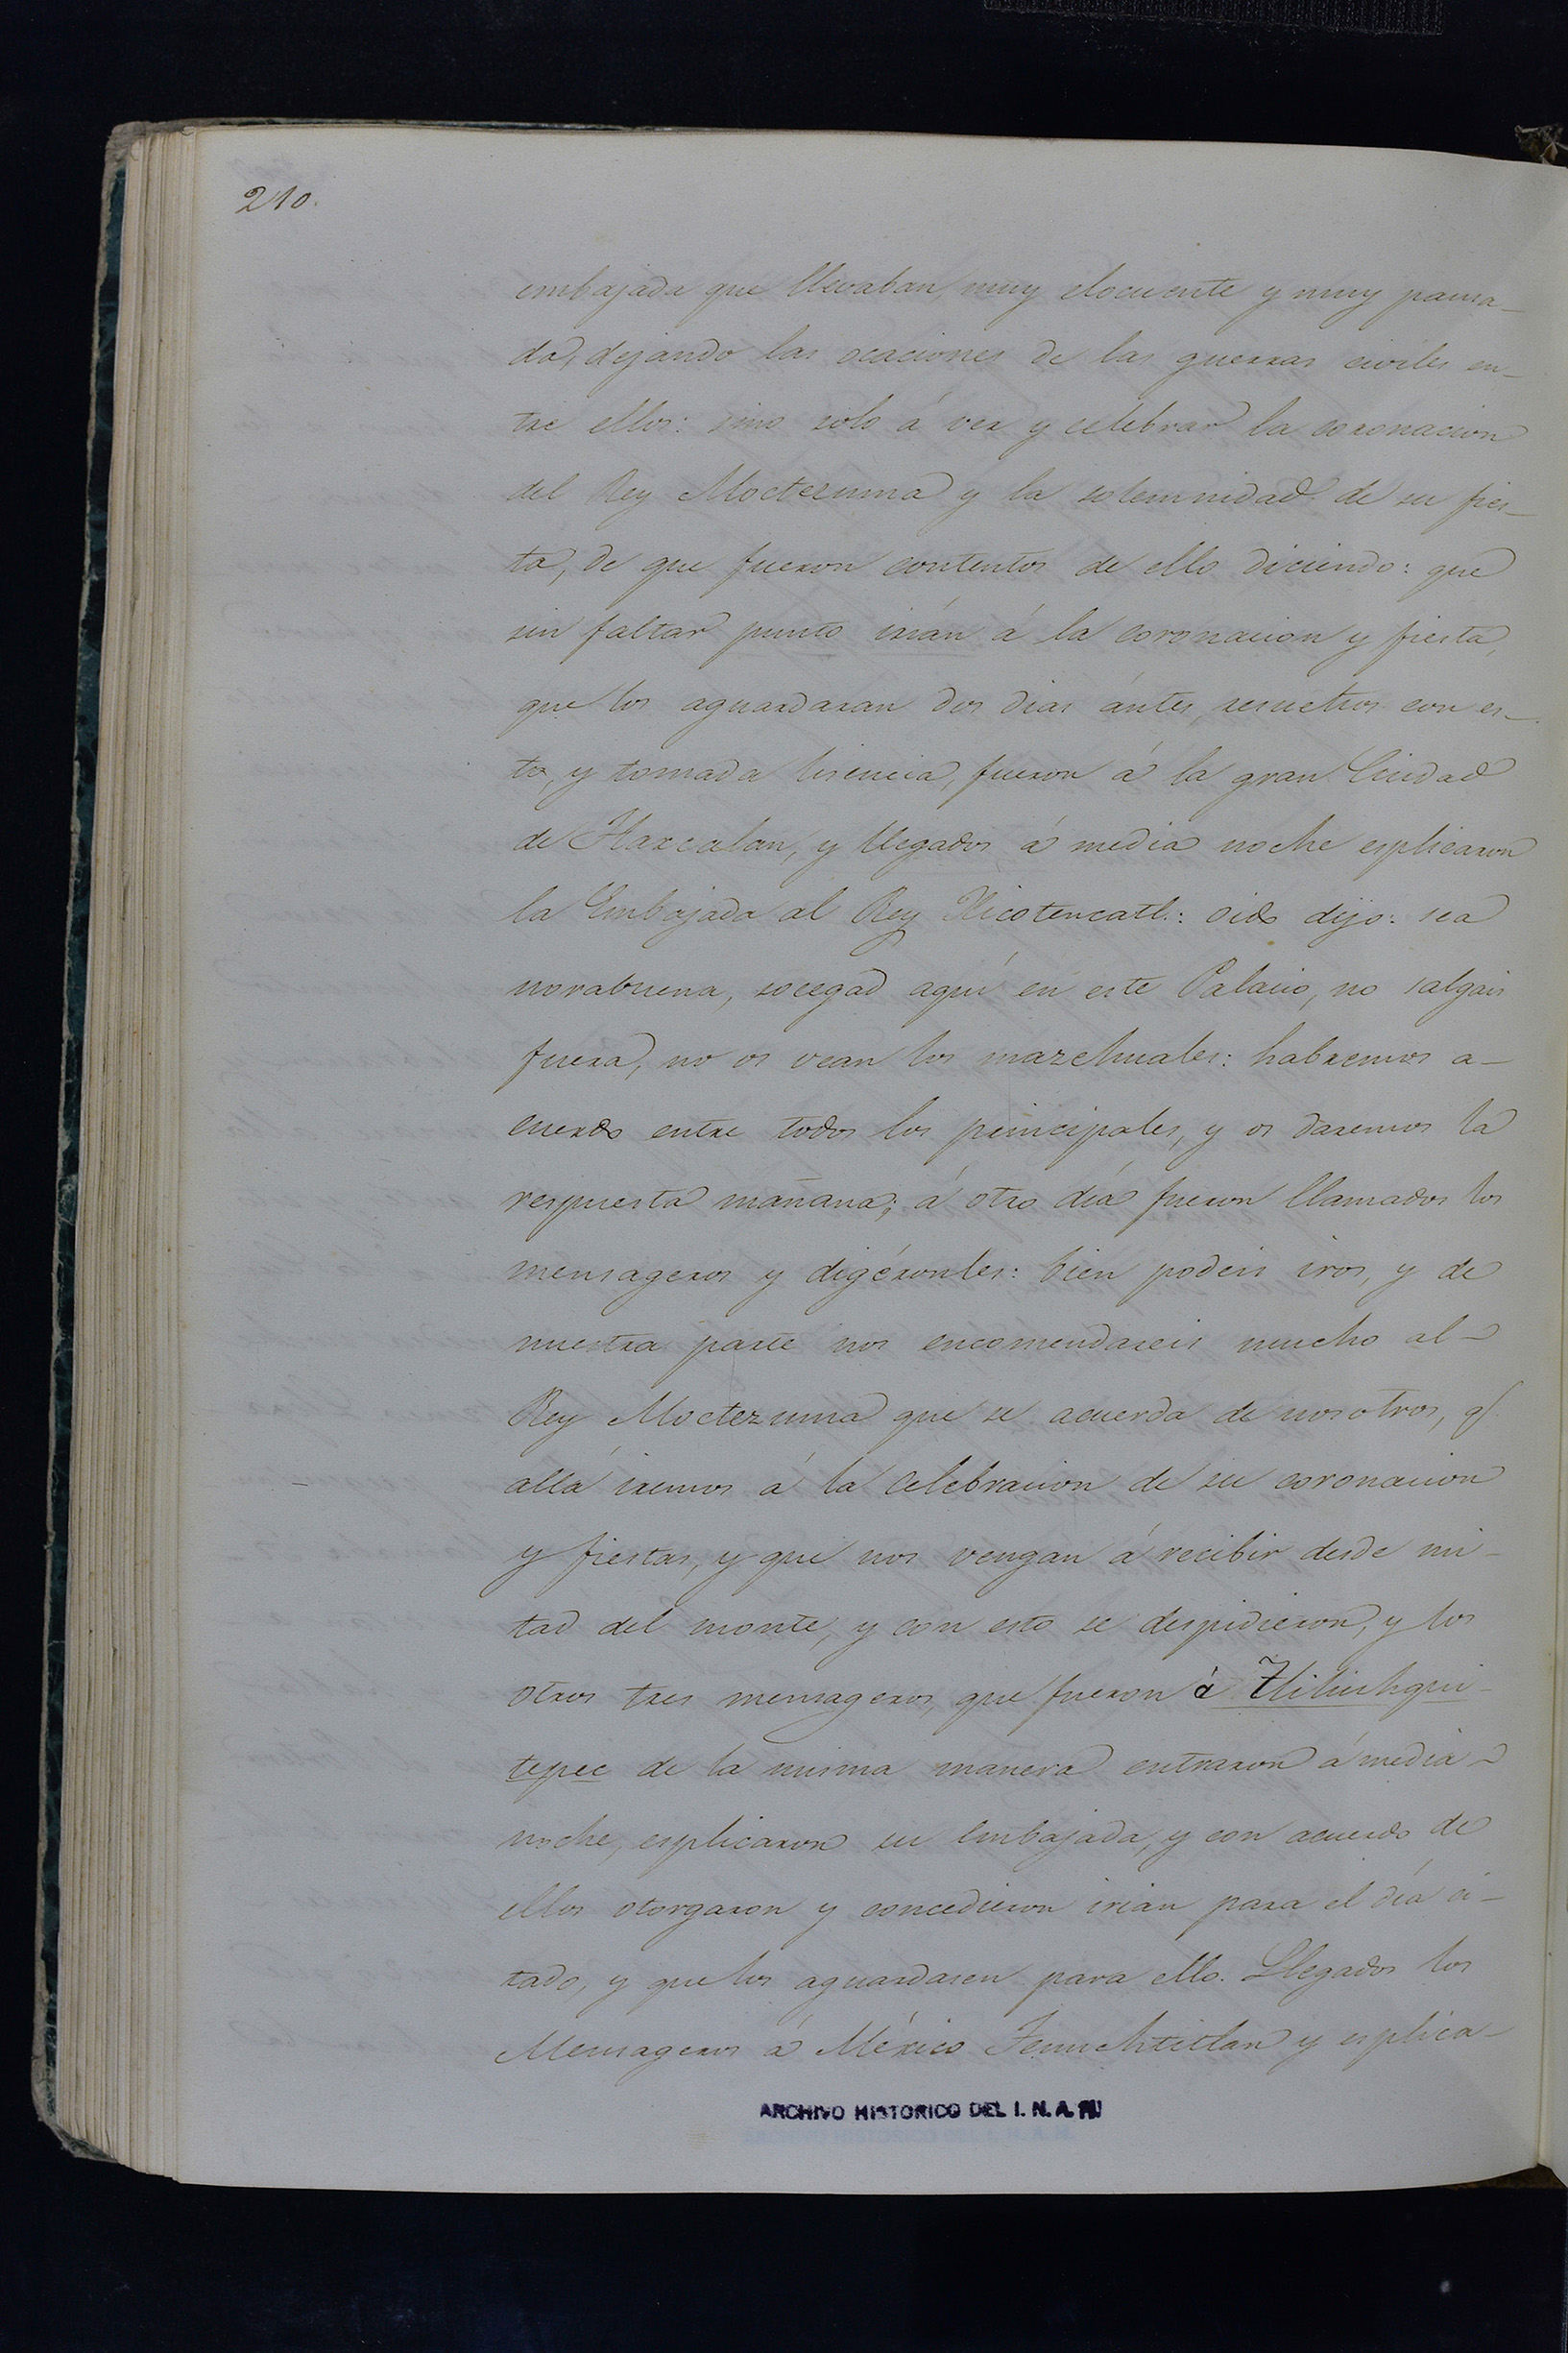 210.
embajada que llevaban, muy elocuente y muy pausa-
da, dejando las ocaciones de las guerras civiles en-
tre ellos: sino solo á ver y celebrar la coronacion
del Rey Moctezuma y la solemnidad de su fies-
ta, de que fueron contentos de ello diciendo: que
sin faltar punto irián á la coronacion y fiesta,
que los aguardaran dos dias ántes, resueltos con es-
to, y tomada lisencia, fueron á la gran Ciudad
de Tlaxcalan, y llegados á media noche esplicaron
la Embajada al Rey Xicotencatl.: oido dijo: sea
norabuena, socegad aquí en este Palacio, no salgais
fuera, no os vean los mazehuales: habremos a-
cuerdo entre todos los principales, y os daremos la
respuesta mañana; á otro día fueron llamados los
mensageros y digéronles: bien podeis iros, y de
nuestra parte nos encomendareis mucho al
Rey Moctezuma que se acuerda de nosotros, q.
allá iremos á la celebracion de su coronacion
y fiestas, y que nos vengan á recibir desde mi-
tad del monte, y con esto se despidieron, y los
otros tres mensageros, que fueron á Tliliuhqui-
tepec de la misma manera entraron á media
noche, esplicaron su embajada, y con acuerdo de
ellos otorgaron y concedieron irian para el día ci-
tado, y que los aguardasen para ello. Llegados los
Mensageros á México Tenuchtitlan y esplica-
ARCHIVO HISTORICO DEL I. N. A. H.